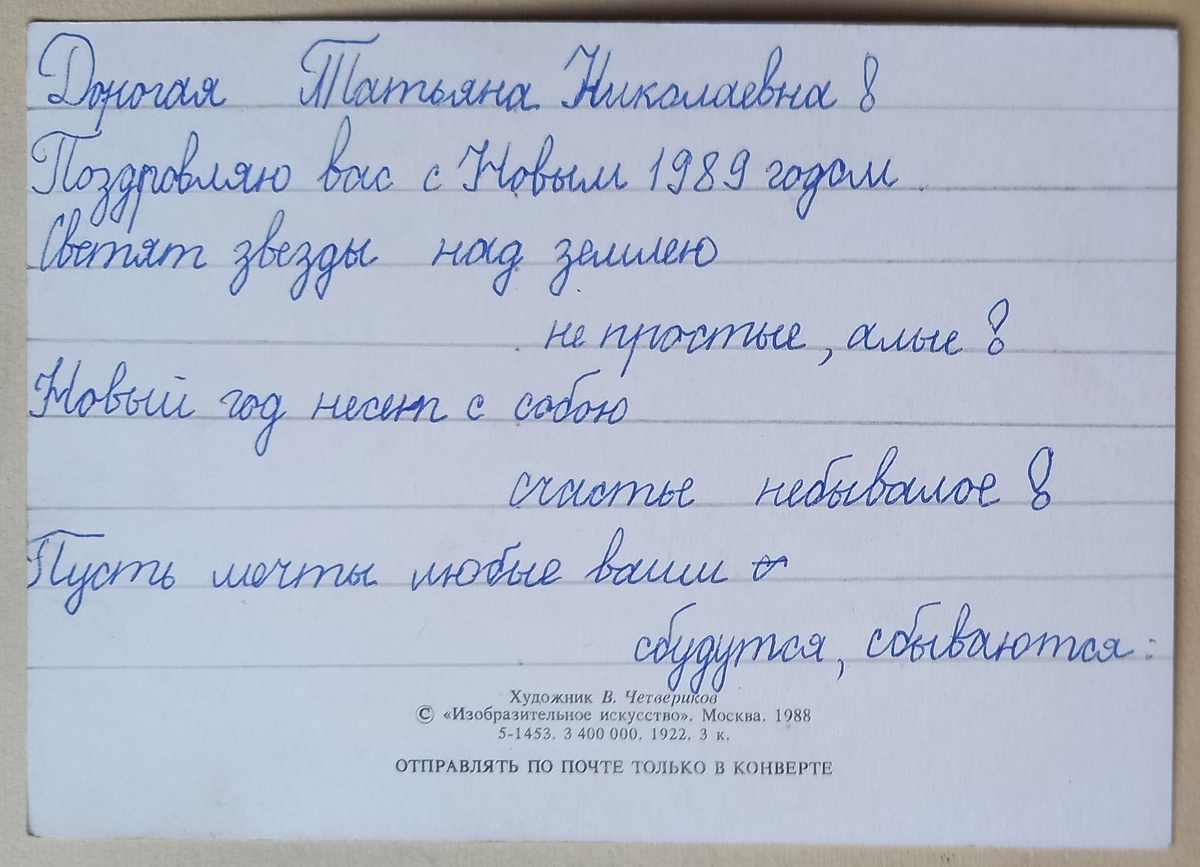 Дорогая Татьяна Николаевна!
Поздровляю вас с Новым 1989 годом.
Светят звезды над землею
не простые, алые!
Новый год несет с собою
счастье небывалое!
Пусть мечты любые ваши
сбудутся, сбываются:
Художник В. Четвериков
© «Изобразительное искусство». Москва. 1988
5-1453. 3 400 000. 1922. 3 к.
ОТПРАВЛЯТЬ ПО ПОЧТЕ ТОЛЬКО В КОНВЕРТЕ